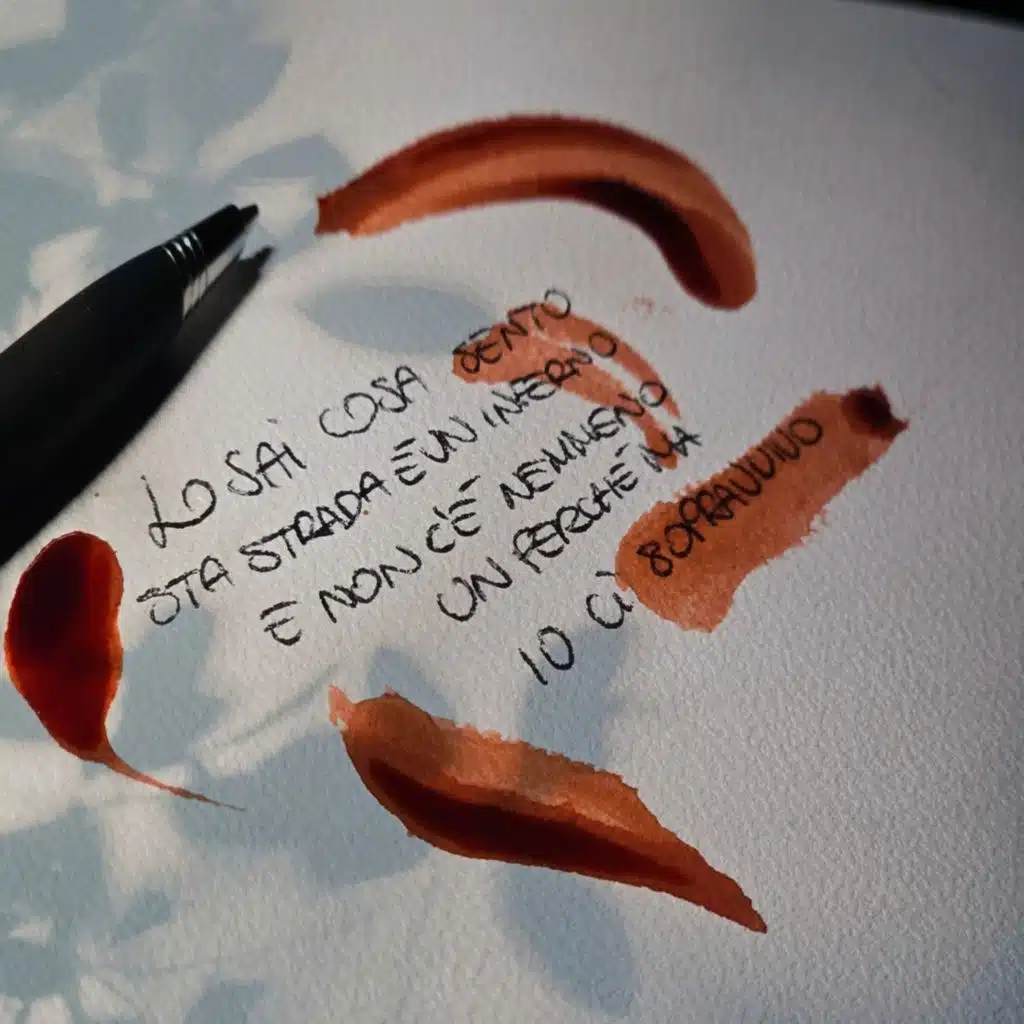 LO SAI COSA SENTO
STA STRADA È UN INFERNO
E NON C'È NEMMENO
UN PERCHÉ MA
IO CI SOPRAVVIVO